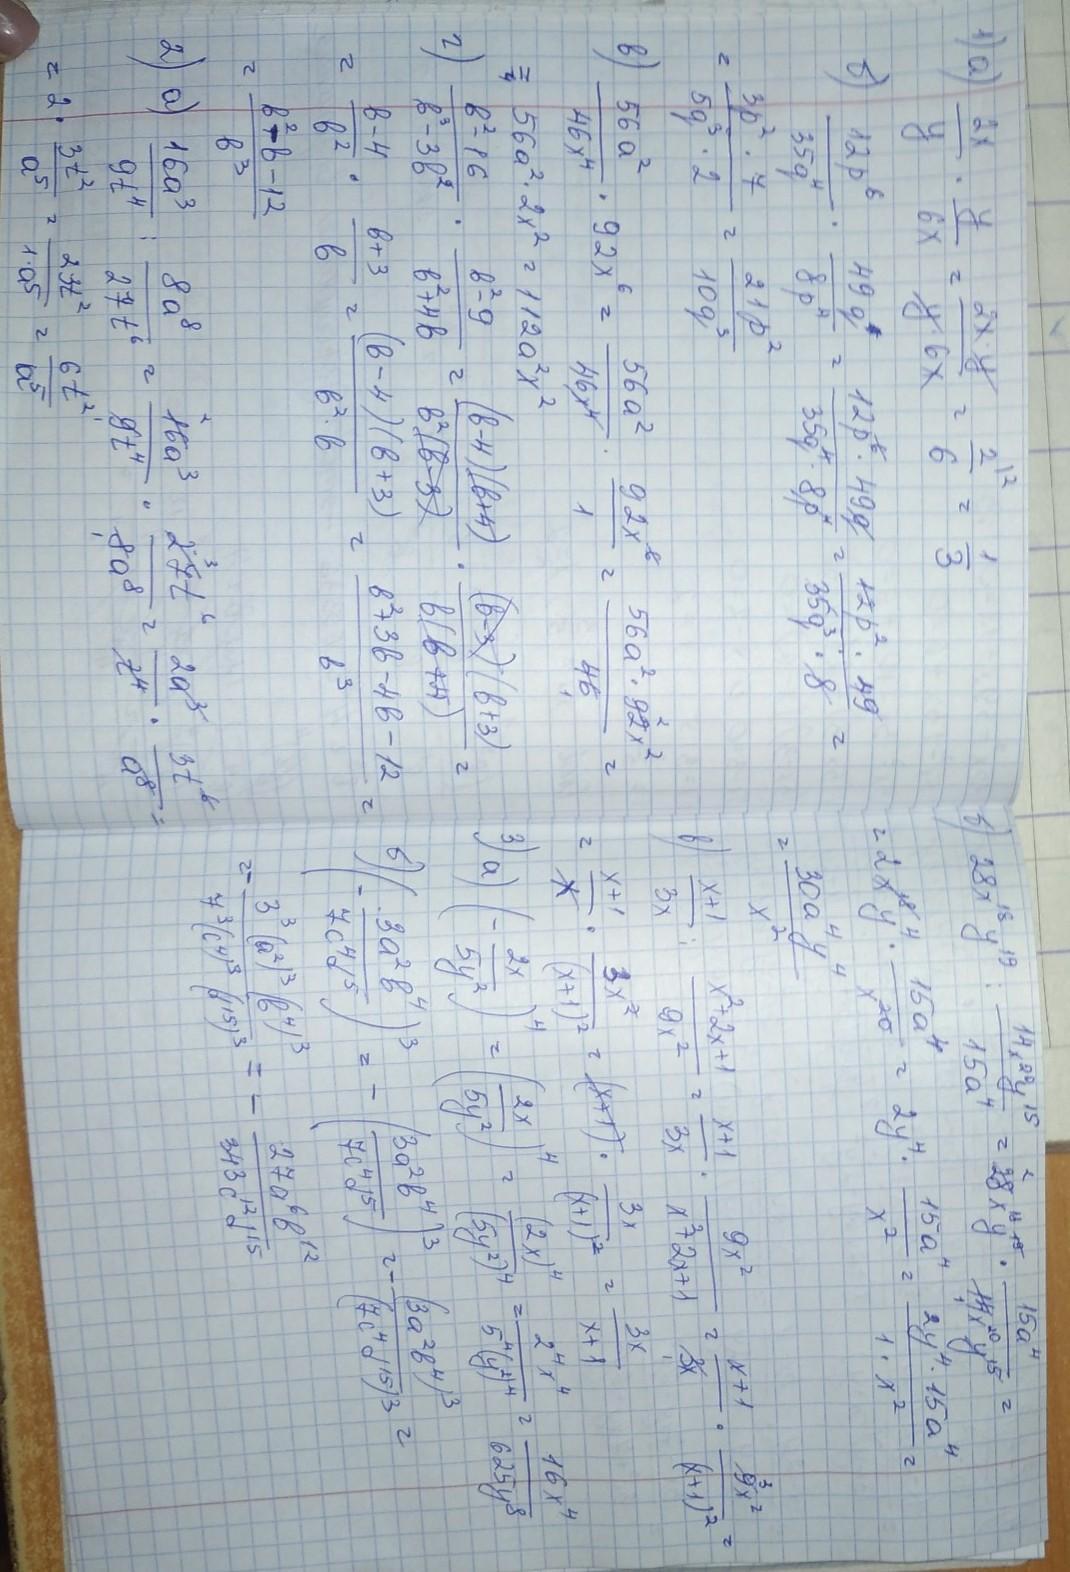 1) а) 2x/y · y/6x = 2x·y/y6x = 2/6 = 1/3
б) 12p⁶/35q⁴ · 49q/8p⁴ = 12p⁶·49q/35q⁴·8p⁴ = 12p²·49/35q³·8 =
= 3p²·7/5q³·2 = 21p²/10q³
в) 56a²/46x⁴ · 92x⁶ = 56a²/46x⁴ · 92x⁶/1 = 56a²·92x²/46 =
= 56a²·2x² = 112a²x²
г) в²-16/в³-3в² · в²-9/в²+4в = (в-4)(в+4)/в²(в-3) · (в-3)(в+3)/в(в+4) =
= в-4/в² · в+3/в = (в-4)(в+3)/в²·в = в²+3в-4в-12/в³ =
= в²-в-12/в³
2) а) 16a³/9t⁴ : 8a⁸/27t⁶ = 16a³/9t⁴ · 27t⁶/8a⁸ = 2a³/t⁴ · 3t⁶/a⁸ =
= 2 · 3t²/a⁵ = 2·3t²/1·a⁵ = 6t²/a⁵
б) 28x¹⁸y¹⁹ : 14x²⁰y¹⁵/15a⁴ = 28x¹⁸y¹⁹ · 15a⁴/14x²⁰y¹⁵ =
= 2x¹⁸y⁴ · 15a⁴/x²⁰ = 2y⁴ · 15a⁴/x² = 2y⁴·15a⁴/1·x² =
= 30a⁴y⁴/x²
в) x+1/3x : x²+2x+1/9x² = x+1/3x · 9x²/x²+2x+1 = x+1/3x · 9x²/(x+1)² =
= x+1/x · 3x²/(x+1)² = (x+1) · 3x/(x+1)² = 3x/x+1
3) а) (-2x/5y²)⁴ = (2x/5y²)⁴ = (2x)⁴/(5y²)⁴ = 2⁴x⁴/5⁴(y²)⁴ = 16x⁴/625y⁸
б) (-3a²в⁴/7c⁴d⁵)³ = -(3a²в⁴/7c⁴d⁵)³ = -(3a²в⁴)³/(7c⁴d⁵)³ =
= -3³(a²)³(в⁴)³/7³(c⁴)³(d⁵)³ = -27a⁶в¹²/343c¹²d¹⁵